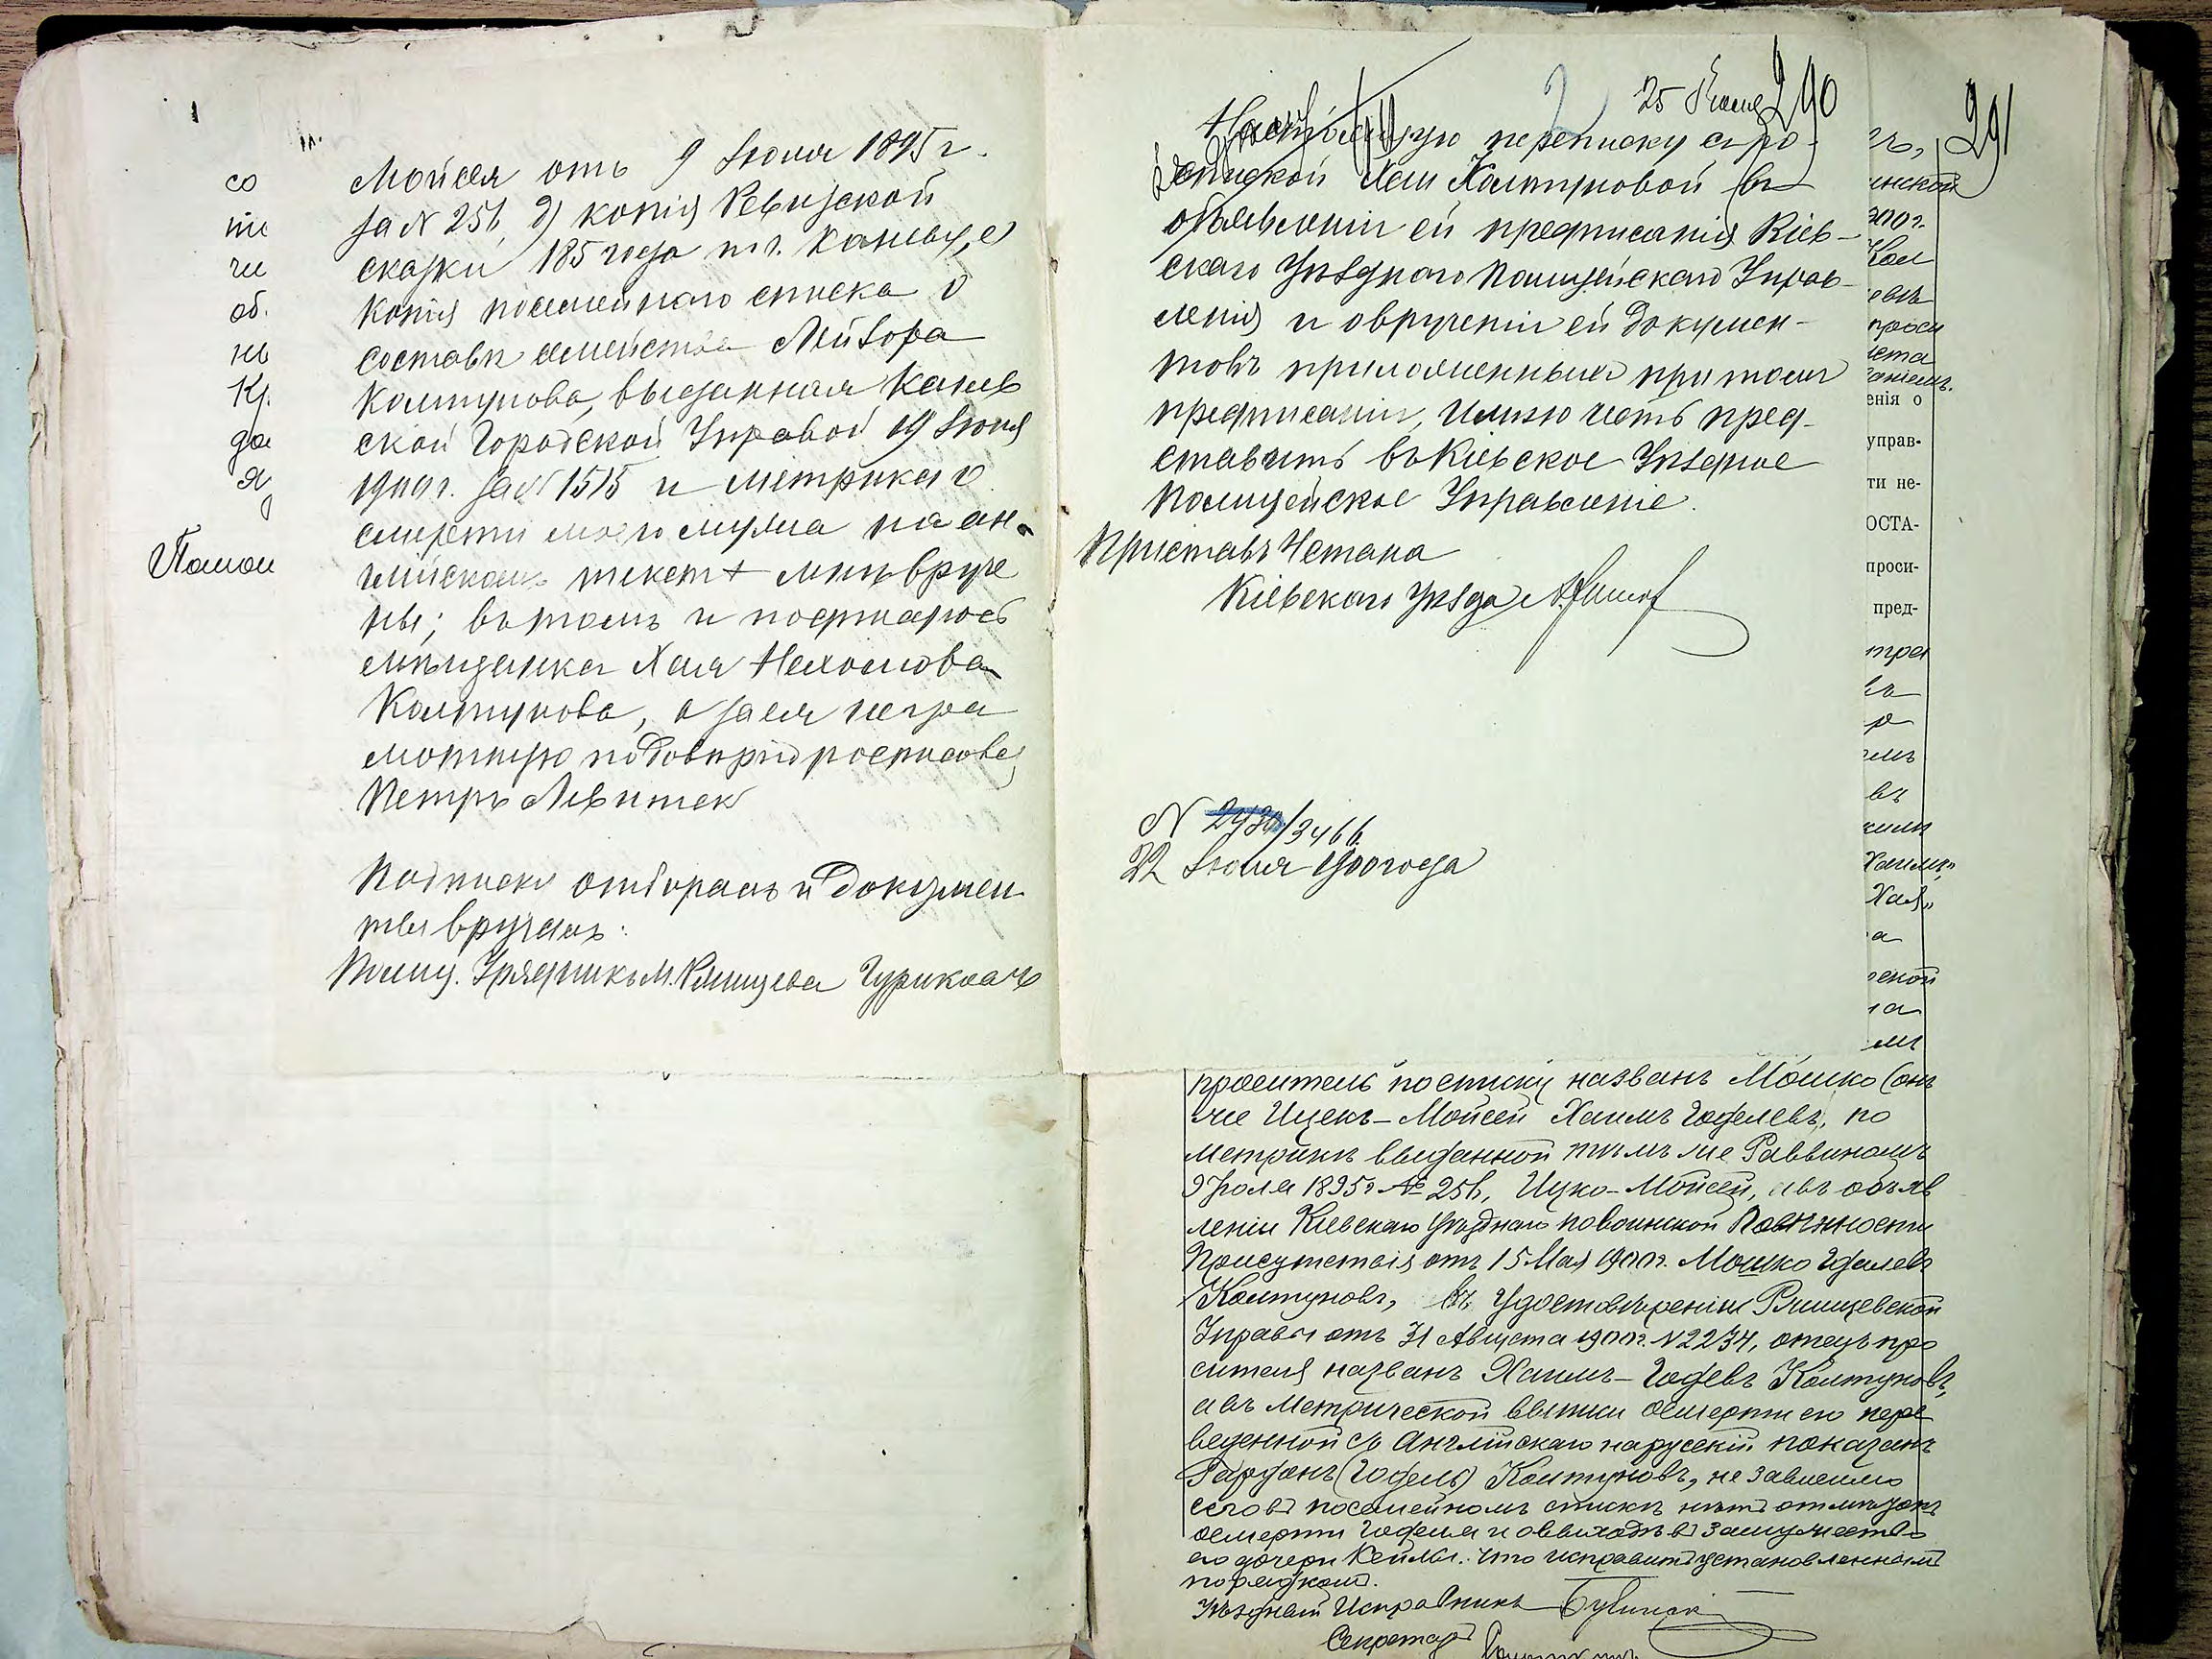 со
ти
чи
об.
нь
Кр.
да
Я
Полои
Мойсея отъ 9 Іюля 1895 г.
за № 256, д) копія Ревизской
сказки 185 года по г. Каневу, е)
копія посемейнаго списка о
составѣ семейства Лейзора
Колтунова, выданная Канев
ской Городской Управой 19 Іюня
1900 г. за № 1515 и метрика о
смерти моего мужа на ан-
глійскомъ текстѣ мнѣ вруче
ны; въ томъ и подписуюсь
мѣщанка Хая Нехомова
Колтунова, а за ея негра
мотную по довѣрію росписався
Петръ Левитек
Подписку отбиралъ и докумен
ты вручилъ.
Полиц. Урядникъ М. Ржищева
25 Іюня 290
Настоящую переписку съ ро-
спиской Хаи Колтуновой въ
объявленіи ей предписанія Кіев-
скаго Уѣзднаго Полицейскаго Управ-
ленія и о врученіи ей докумен-
товъ приложенныхъ при томъ
предписаніи, имѣю честь пред-
ставить въ Кіевское Уѣздное
Полицейское Управленіе.
Приставъ 4 стана
Кіевскаго Уѣзда
№ 2930/3466
22 Іюля 1900 года
291
гъ,
инской
900 г.
Кол
евъ
проси
мета
енія о
управ-
ти не-
ОСТА-
проси-
пред-
тра
въ
р
емъ
въ
Хаимъ"
Хая"
а
ской
ла
ми
проситель по списку названъ Мошко (онъ
же Ицекъ-Мойсей Хаимъ Годелевъ, по
метрикѣ выданной тѣмъ же Раввиномъ
9 Іюля 1895 г № 256, Ицко-Мойсей, а въ объяв
леніи Кіевскаго Уѣзднаго по воинской Повинности
Присутствія отъ 15 Мая 1900 г. Мошко Годелевъ
Колтуновъ, въ удостовѣреніи Ржищевской
Управы отъ 31 Августа 1900 г. № 2234, отецъ про
сителя названъ Хаимъ-Годевъ Колтуновъ,
а въ Метрической выписи о смерти его пере
веденной съ Англійскаго на русскій показанъ
Гарданъ (Годель) Колтуновъ, не зависимо
сего въ посемейномъ спискѣ нѣтъ отмѣтокъ
о смерти Годеля и о выходѣ въ замужество
его дочери Кейлы. что исправить установленнымъ
порядкомъ.
Уѣздный Исправникъ
Секретарь